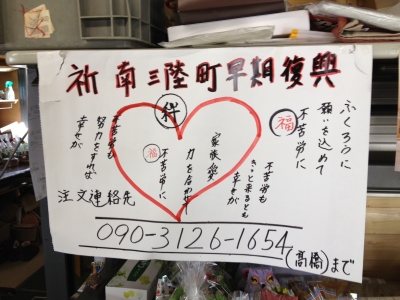 祈 南三陸町早期復興
ふくろうに
願いを込めて
福
不苦労に
不苦労も
きっと来るとも
幸せが
絆
家族絆
力を合わせ
不苦労に
福
不苦労も
努力をすれば
幸せが
注文連絡先
090-3126-1654
(高橋)まで